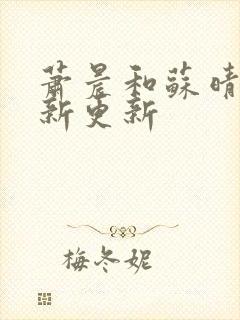 萧晨和蘇晴
新更新
梅冬妮